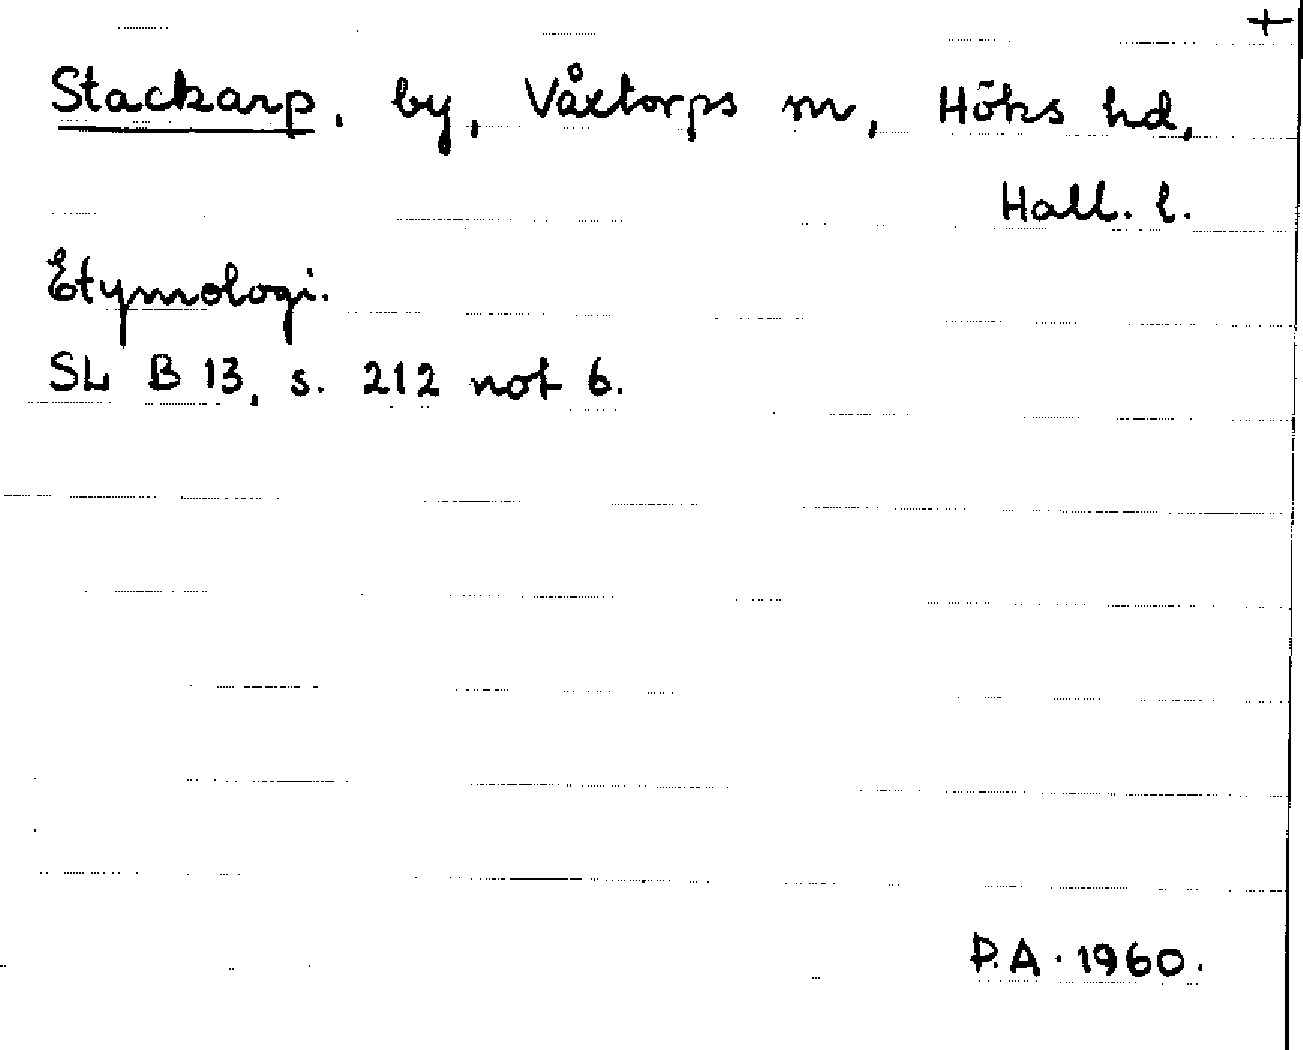 +
Stackarp, by, Våxtorps sn, Höks hd,
Hall. l.
Etymologi.
SL B 13, s. 212 not 6.
P.A. 1960.